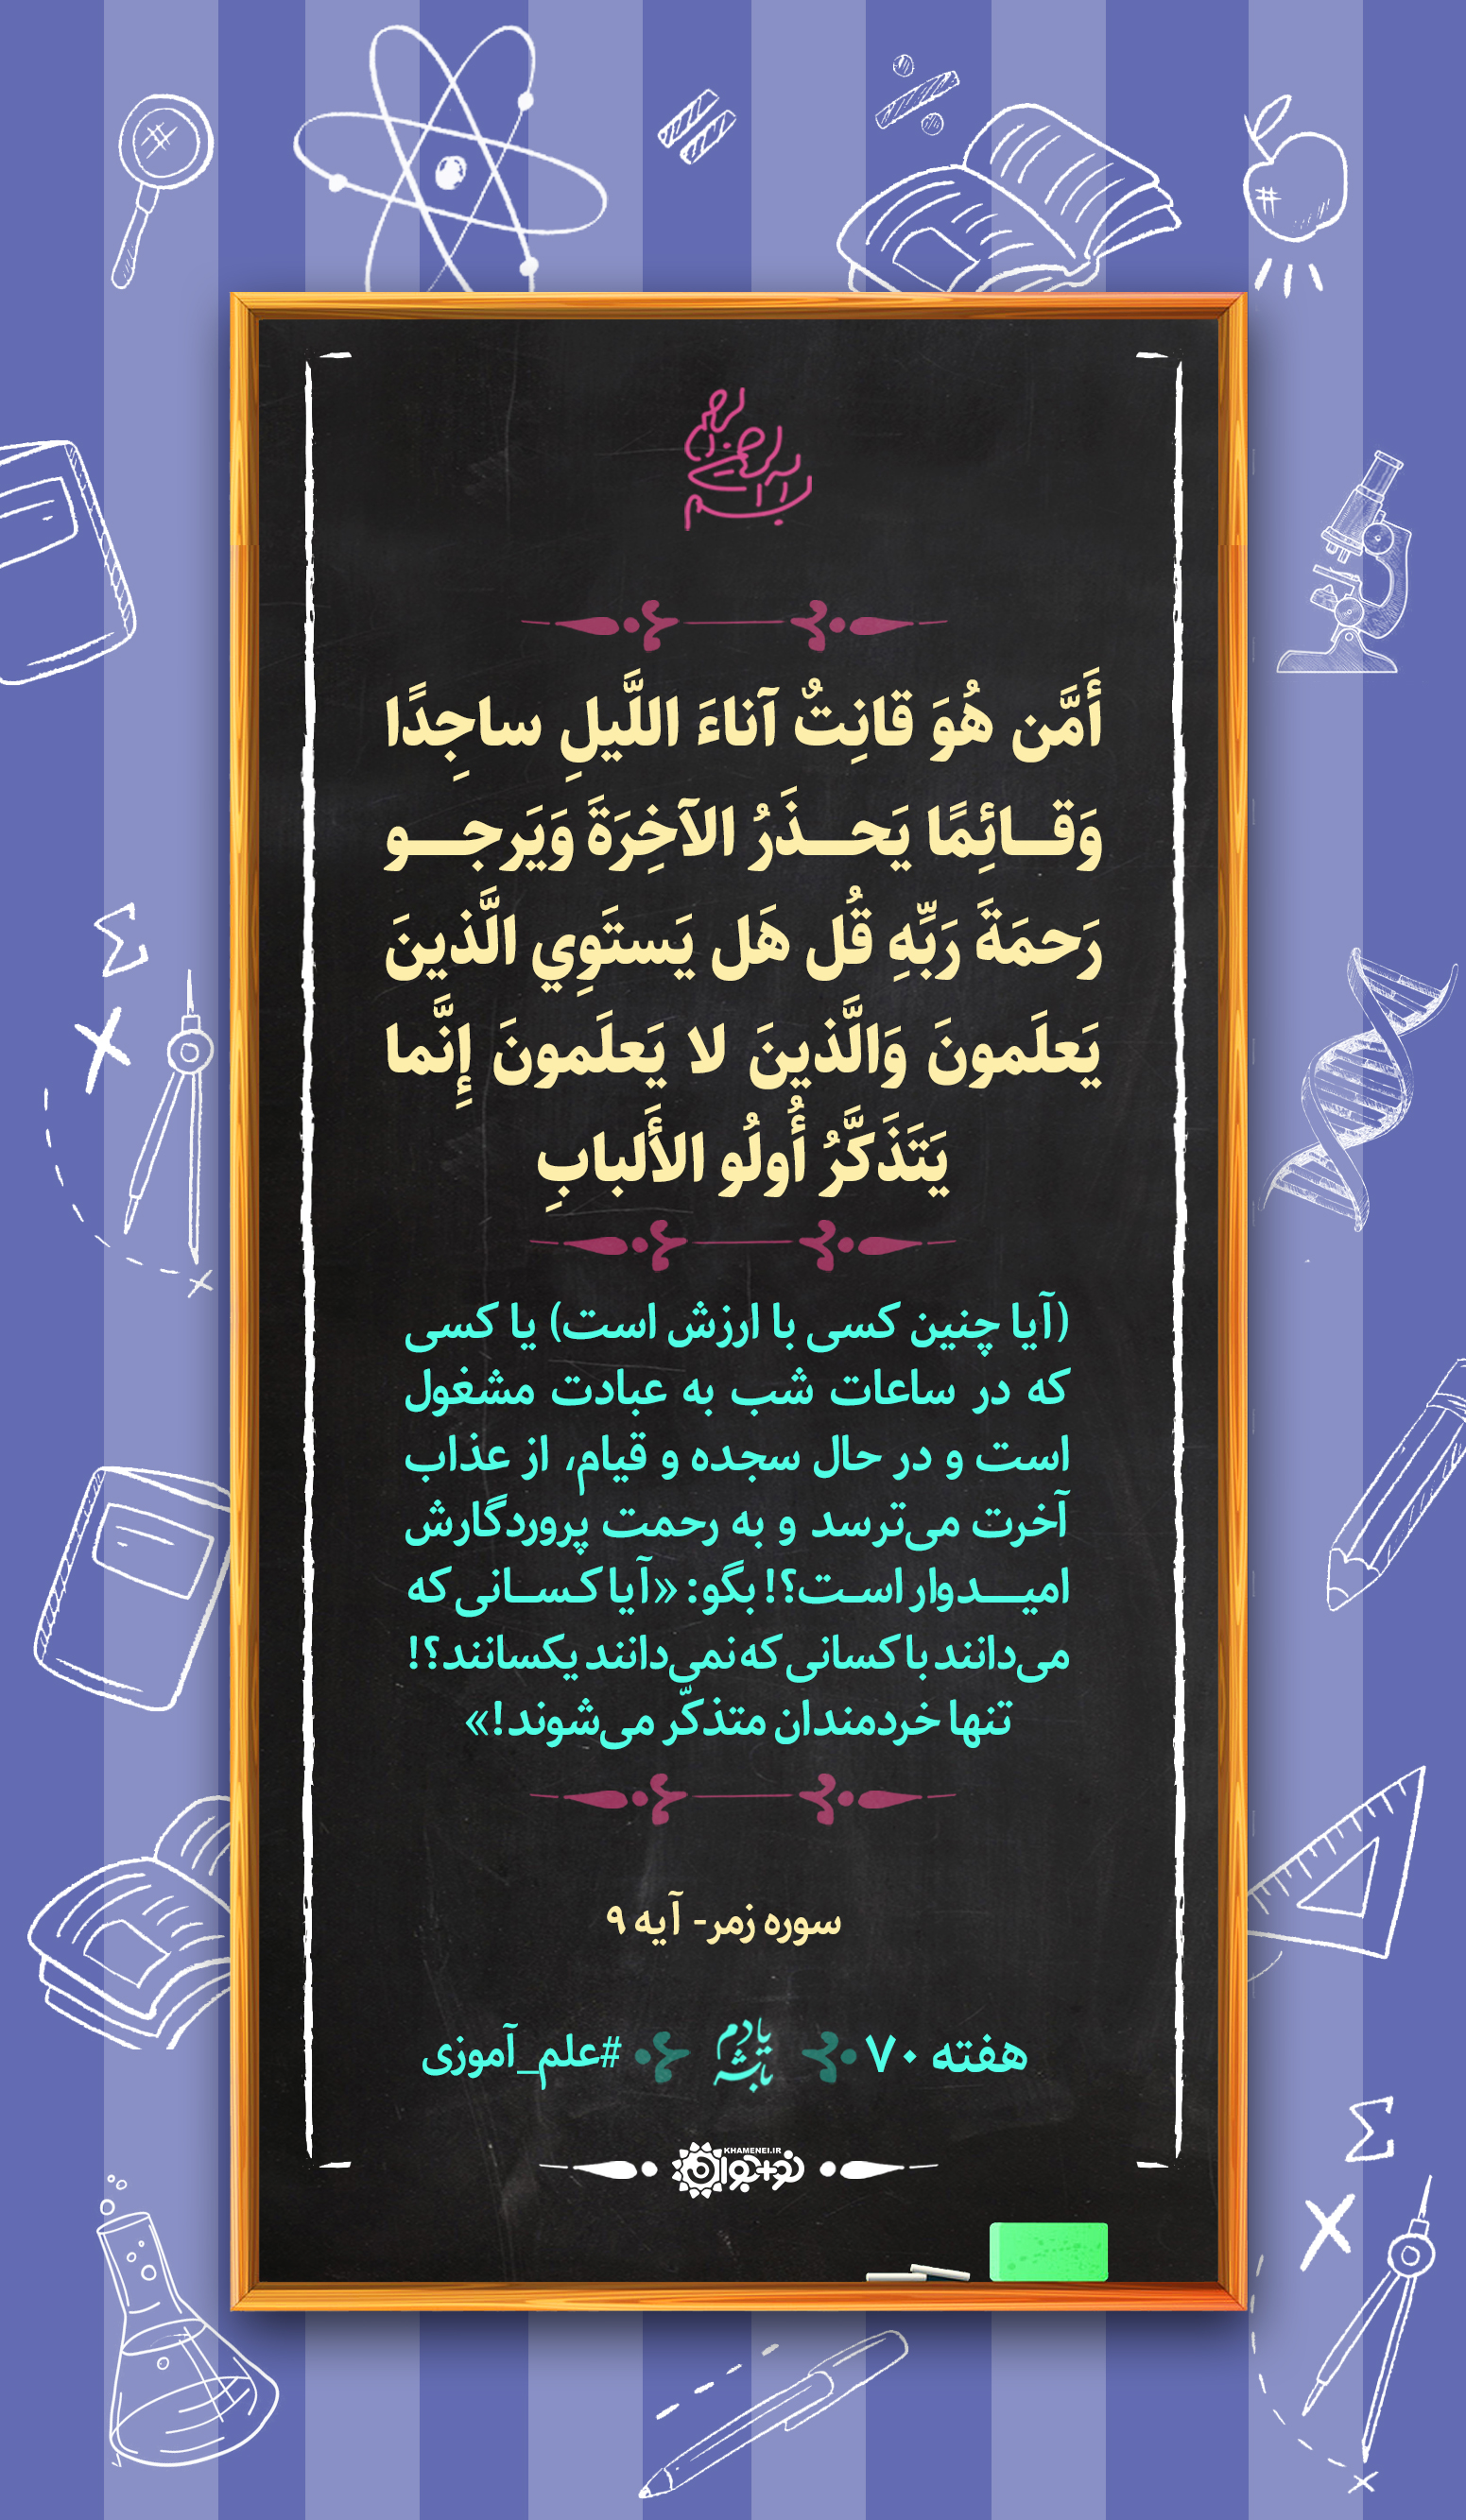 بسم الله الرحمن الرحیم
أَمَّن هُوَ قانِتٌ آناءَ اللَّيلِ ساجِدًا
وَقــائِمًا يَحــذَرُ الآخِرَةَ وَيَرجــو
رَحمَةَ رَبِّهِ قُل هَل يَستَوِي الَّذينَ
يَعلَمونَ وَالَّذينَ لا يَعلَمونَ إِنَّما
يَتَذَكَّرُ أُولُو الأَلبابِ
(آیا چنین کسی با ارزش است) یا کسی
که در ساعات شب به عبادت مشغول
است و در حال سجده و قیام، از عذاب
آخرت می‌ترسد و به رحمت پروردگارش
امیــدوار اسـت؟! بگو: «آیا کـســانی که
می‌دانند با کسانی که نمی‌دانند یکسانند؟!
تنها خردمندان متذکّر می‌شوند!»
سوره زمر- آیه ۹
هفته ۷۰ یادم باشه #علم_آموزی
KHAMENEI.IR
نو+جوان
Σ
×
Σ
×